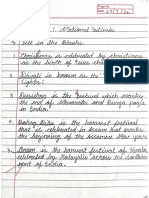 1. National Festivals
1. Fill in the Blanks
a. Christmas is celebrated by christians
as the birth of Jesus
b. Diwali is known as the "
Lights"
c. Dussehra is the festival which marks
the end of Navaratri and Durga pooja
in India.
d. Bohag Bihu is the harvest festival
that is celebrated in Assam that marks
the beginning of the Assamese New year.
e. Onam is the harvest festival of Kerala
celebrated by Malayalis across the southern
part of India.